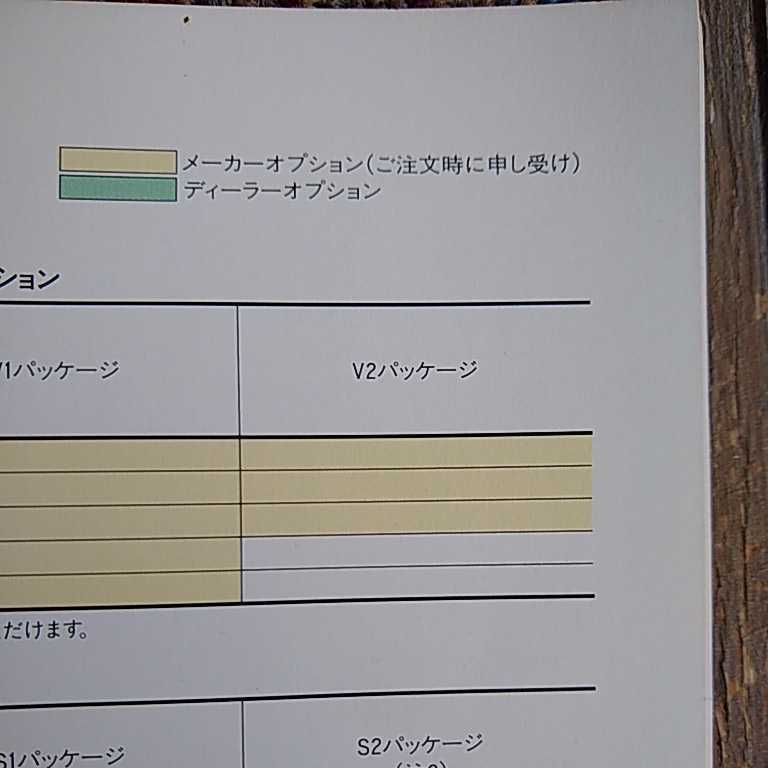 メーカーオプション(ご注文時に申し受け)
ディーラーオプション
ション
V1パッケージ
V2パッケージ
だけます。
S1パッケージ
S2パッケージ